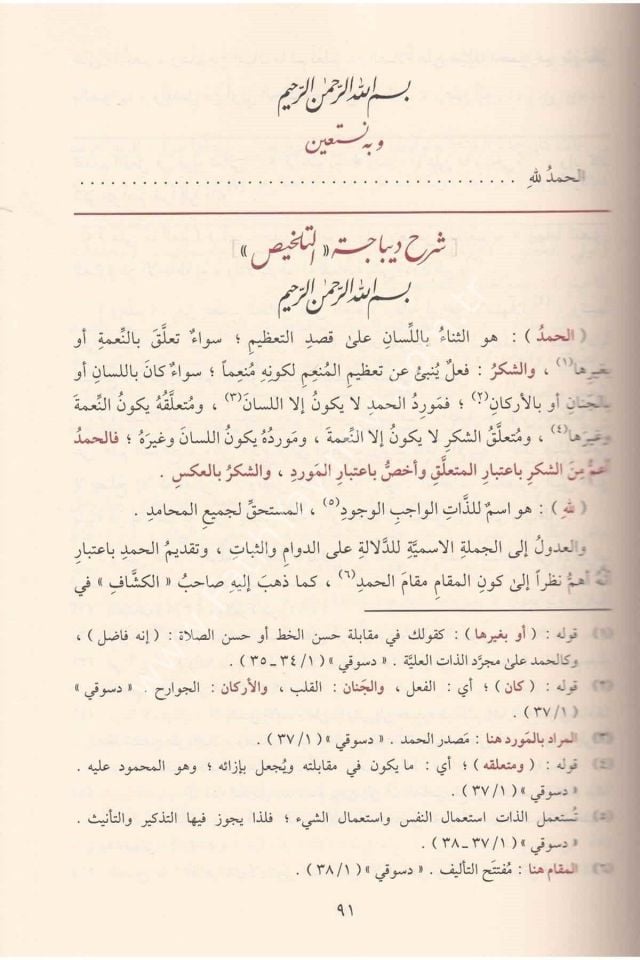 بسم الله الرحمن الرحيم
وبه نستعين
الحمدُ للهِ ...........................................
[ شرح ديباجة « التلخيص » ]
بسم الله الرحمن الرحيم
( الحمدُ ) : هو الثناءُ باللِّسان علىٰ قصدِ التعظيمِ ؛ سواءٌ تعلَّقَ بالنِّعمةِ أو
بغيرِها(١) ، والشكرُ : فعلٌ يُنبئُ عن تعظيم المُنعِم لكونِهِ مُنعِماً ؛ سواءٌ كانَ باللِّسانِ أو
بالجَنانِ أو بالأركانِ(٢) ؛ فمَورِدُ الحمدِ لا يكونُ إلا اللسانَ(٣) ، ومُتعلَّقُهُ يكونُ النِّعمةَ
وغيرَها(٤) ، ومُتعلَّقُ الشكرِ لا يكونُ إلا النِّعمةَ ، ومَورِدُهُ يكونُ اللسانَ وغيرَهُ ؛ فالحمدُ
أعمُّ مِنَ الشكرِ باعتبارِ المتعلَّقِ وأخصُّ باعتبارِ المَورِدِ ، والشكرُ بالعكسِ .
( للهِ ) : هو اسمٌ للذَّاتِ الواجبِ الوجودِ(٥) ، المستحقِّ لجميعِ المحامدِ .
والعدولُ إلى الجملةِ الاسميَّةِ للدَّلالةِ على الدوامِ والثباتِ ، وتقديمُ الحمدِ باعتبارِ
أنَّهُ أهمُّ نظراً إلىٰ كونِ المقامِ مقامَ الحمدِ(٦) ، كما ذهبَ إليهِ صاحبُ « الكشَّافِ » في
(١) قوله : ( أو بغيرها ) : كقولك في مقابلة حسن الخط أو حسن الصلاة : ( إنه فاضل ) ،
وكالحمد علىٰ مجرَّد الذات العليَّة . « دسوقي » ( ١/ ٣٤-٣٥ ) .
(٢) قوله : ( كان ) ؛ أي : الفعل ، والجَنان : القلب ، والأركان : الجوارح . « دسوقي »
( ١/ ٣٧ ) .
(٣) المراد بالمَورِد هنا : مَصدر الحمد . « دسوقي » ( ١/ ٣٧ ) .
(٤) قوله : ( ومتعلقه ) ؛ أي : ما يكون في مقابلته ويُجعل بإزائه ؛ وهو المحمود عليه .
« دسوقي » ( ١/ ٣٧ ) .
(٥) تُستعمل الذات استعمال النفس واستعمال الشيء ؛ فلذا يجوز فيها التذكير والتأنيث .
« دسوقي » ( ١/ ٣٧-٣٨ ) .
(٦) المقام هنا : مُفتتَح التأليف . « دسوقي » ( ١/ ٣٨ ) .
٩١